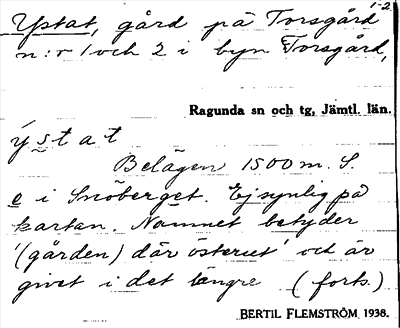 1-2
Ystat, gård på Torsgård
n:r 1 och 2 i byn Torsgård,
Ragunda sn och tg, Jämtl. län.
ýstat
Belägen 1500 m. S.
e i Snöberget. Ej synlig på
kartan. Namnet betyder
'(gården) där österut' och är
givet i det längre (forts.)
BERTIL FLEMSTRÖM 1938.